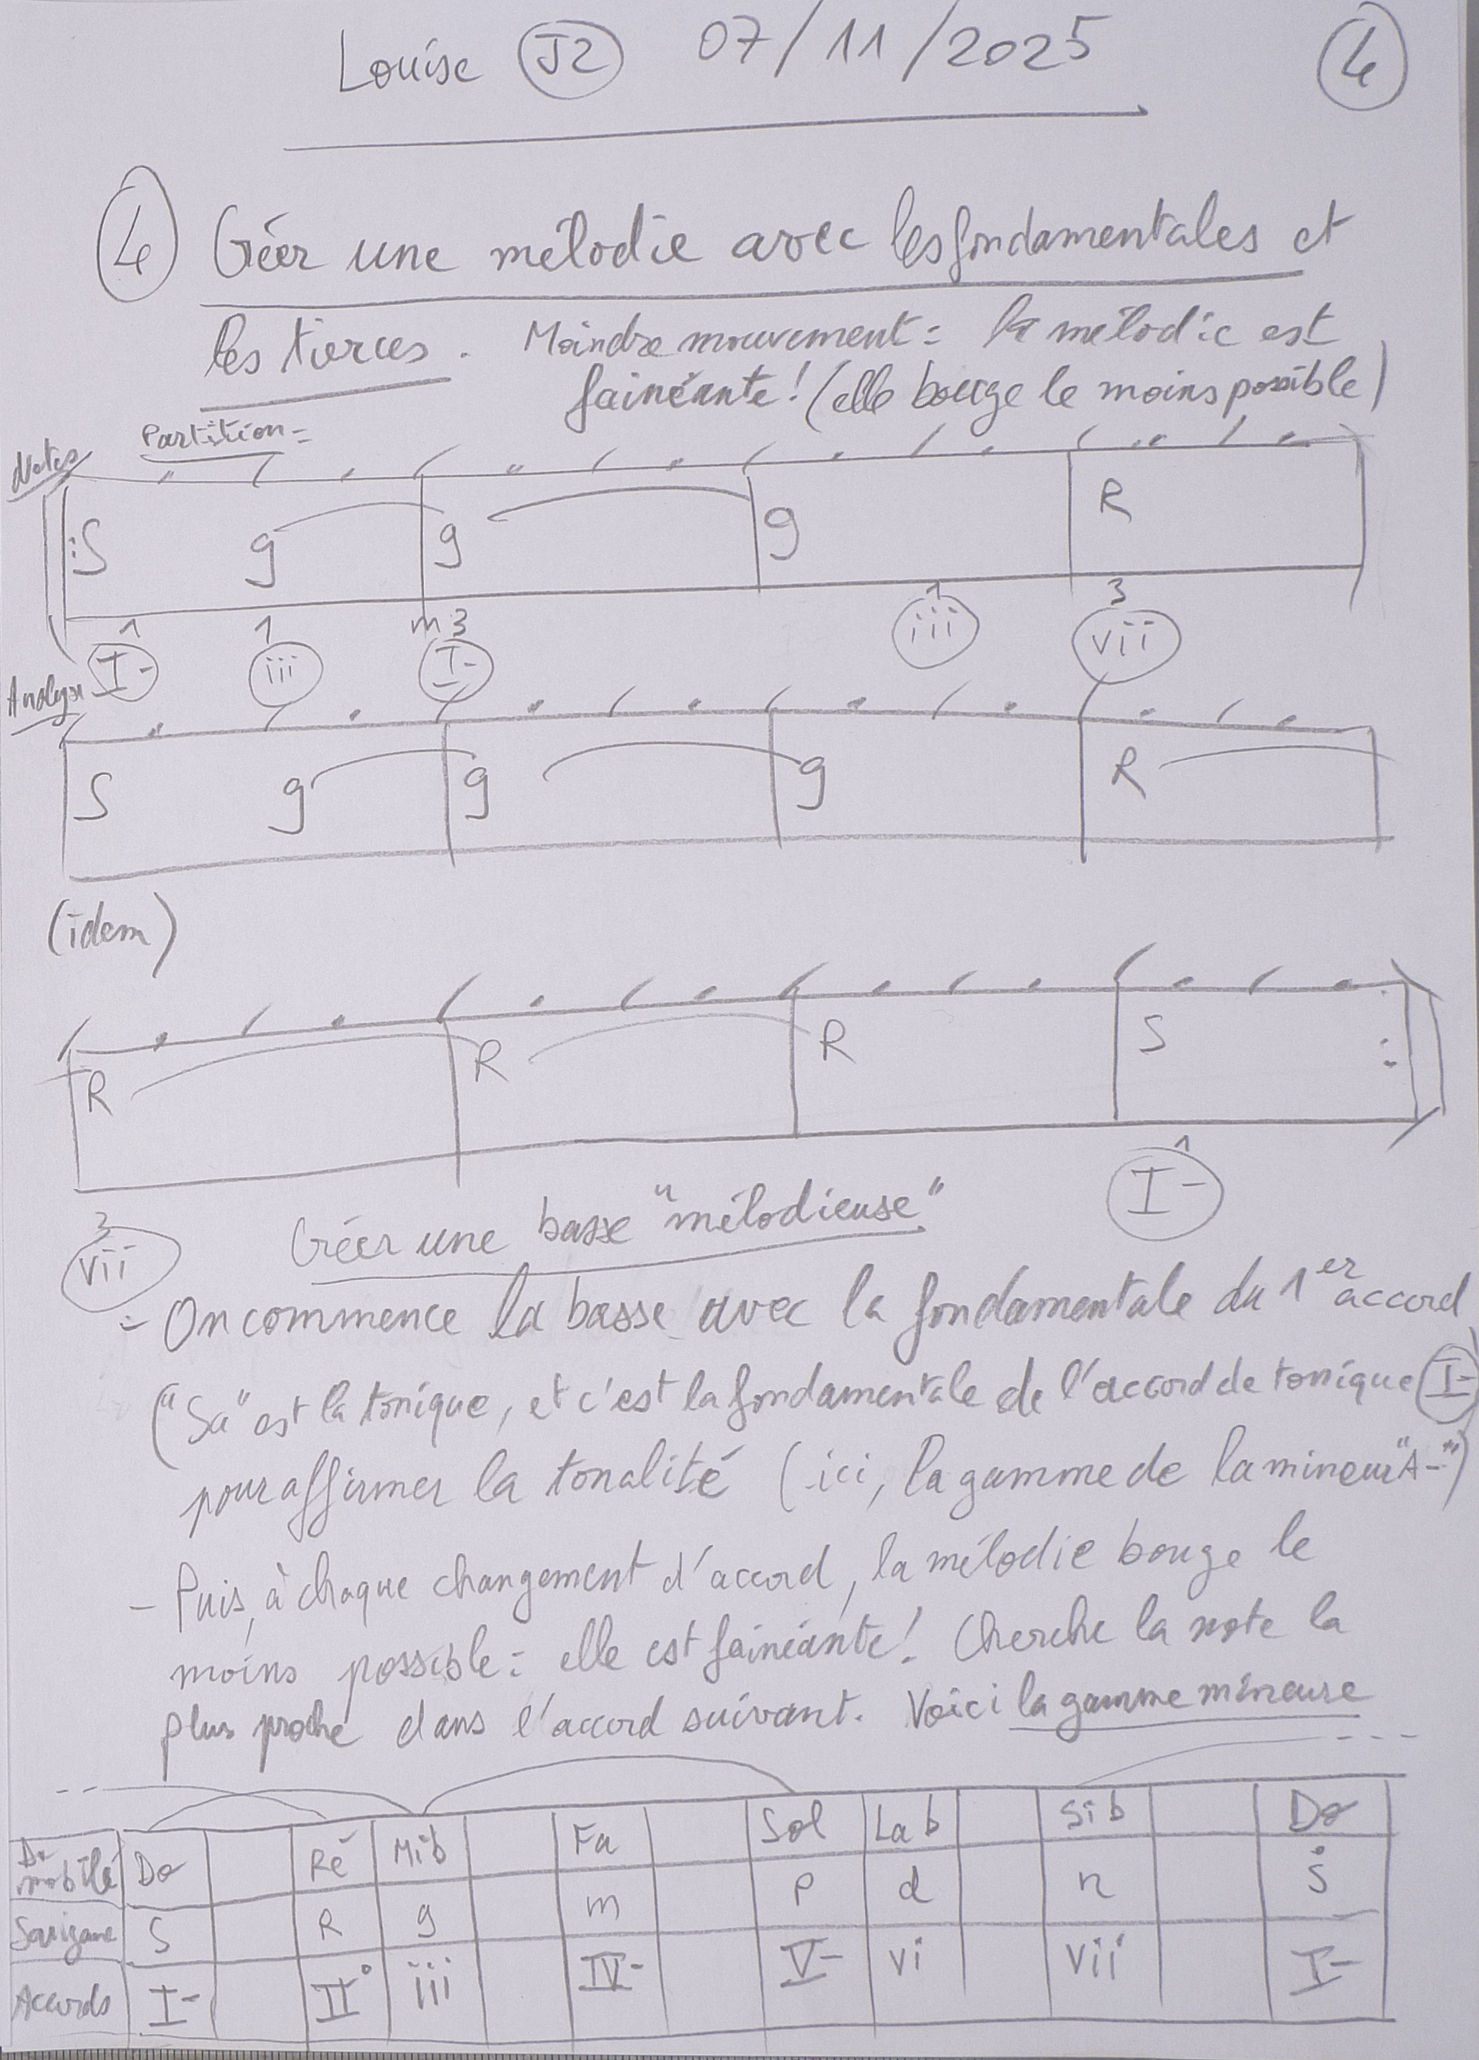 Louise J2 07/11/2025 4
4 Créer une mélodie avec les fondamentales et
les tierces. Moindre mouvement = la mélodie est
fainéante ! (elle bouge le moins possible)
Notes Partition =
S g g g R
1 1 m3 1 3
I- iii I- iii vii
Analyse
S g g g R
(idem)
R R R S
1
I-
3
vii
Créer une basse "mélodieuse"
- On commence la basse avec la fondamentale du 1er accord
("Sa" est la tonique, et c'est la fondamentale de l'accord de tonique I-
pour affirmer la tonalité (ici, la gamme de la mineur "A-")
- Puis, à chaque changement d'accord, la mélodie bouge le
moins possible = elle est fainéante ! Cherche la note la
plus proche dans l'accord suivant. Voici la gamme mineure
Do mobile Do Ré Mib Fa Sol Lab Sib Do
Sarigame S R g m p d n Ṡ
Accords I- II° iii IV- V- vi vii I-